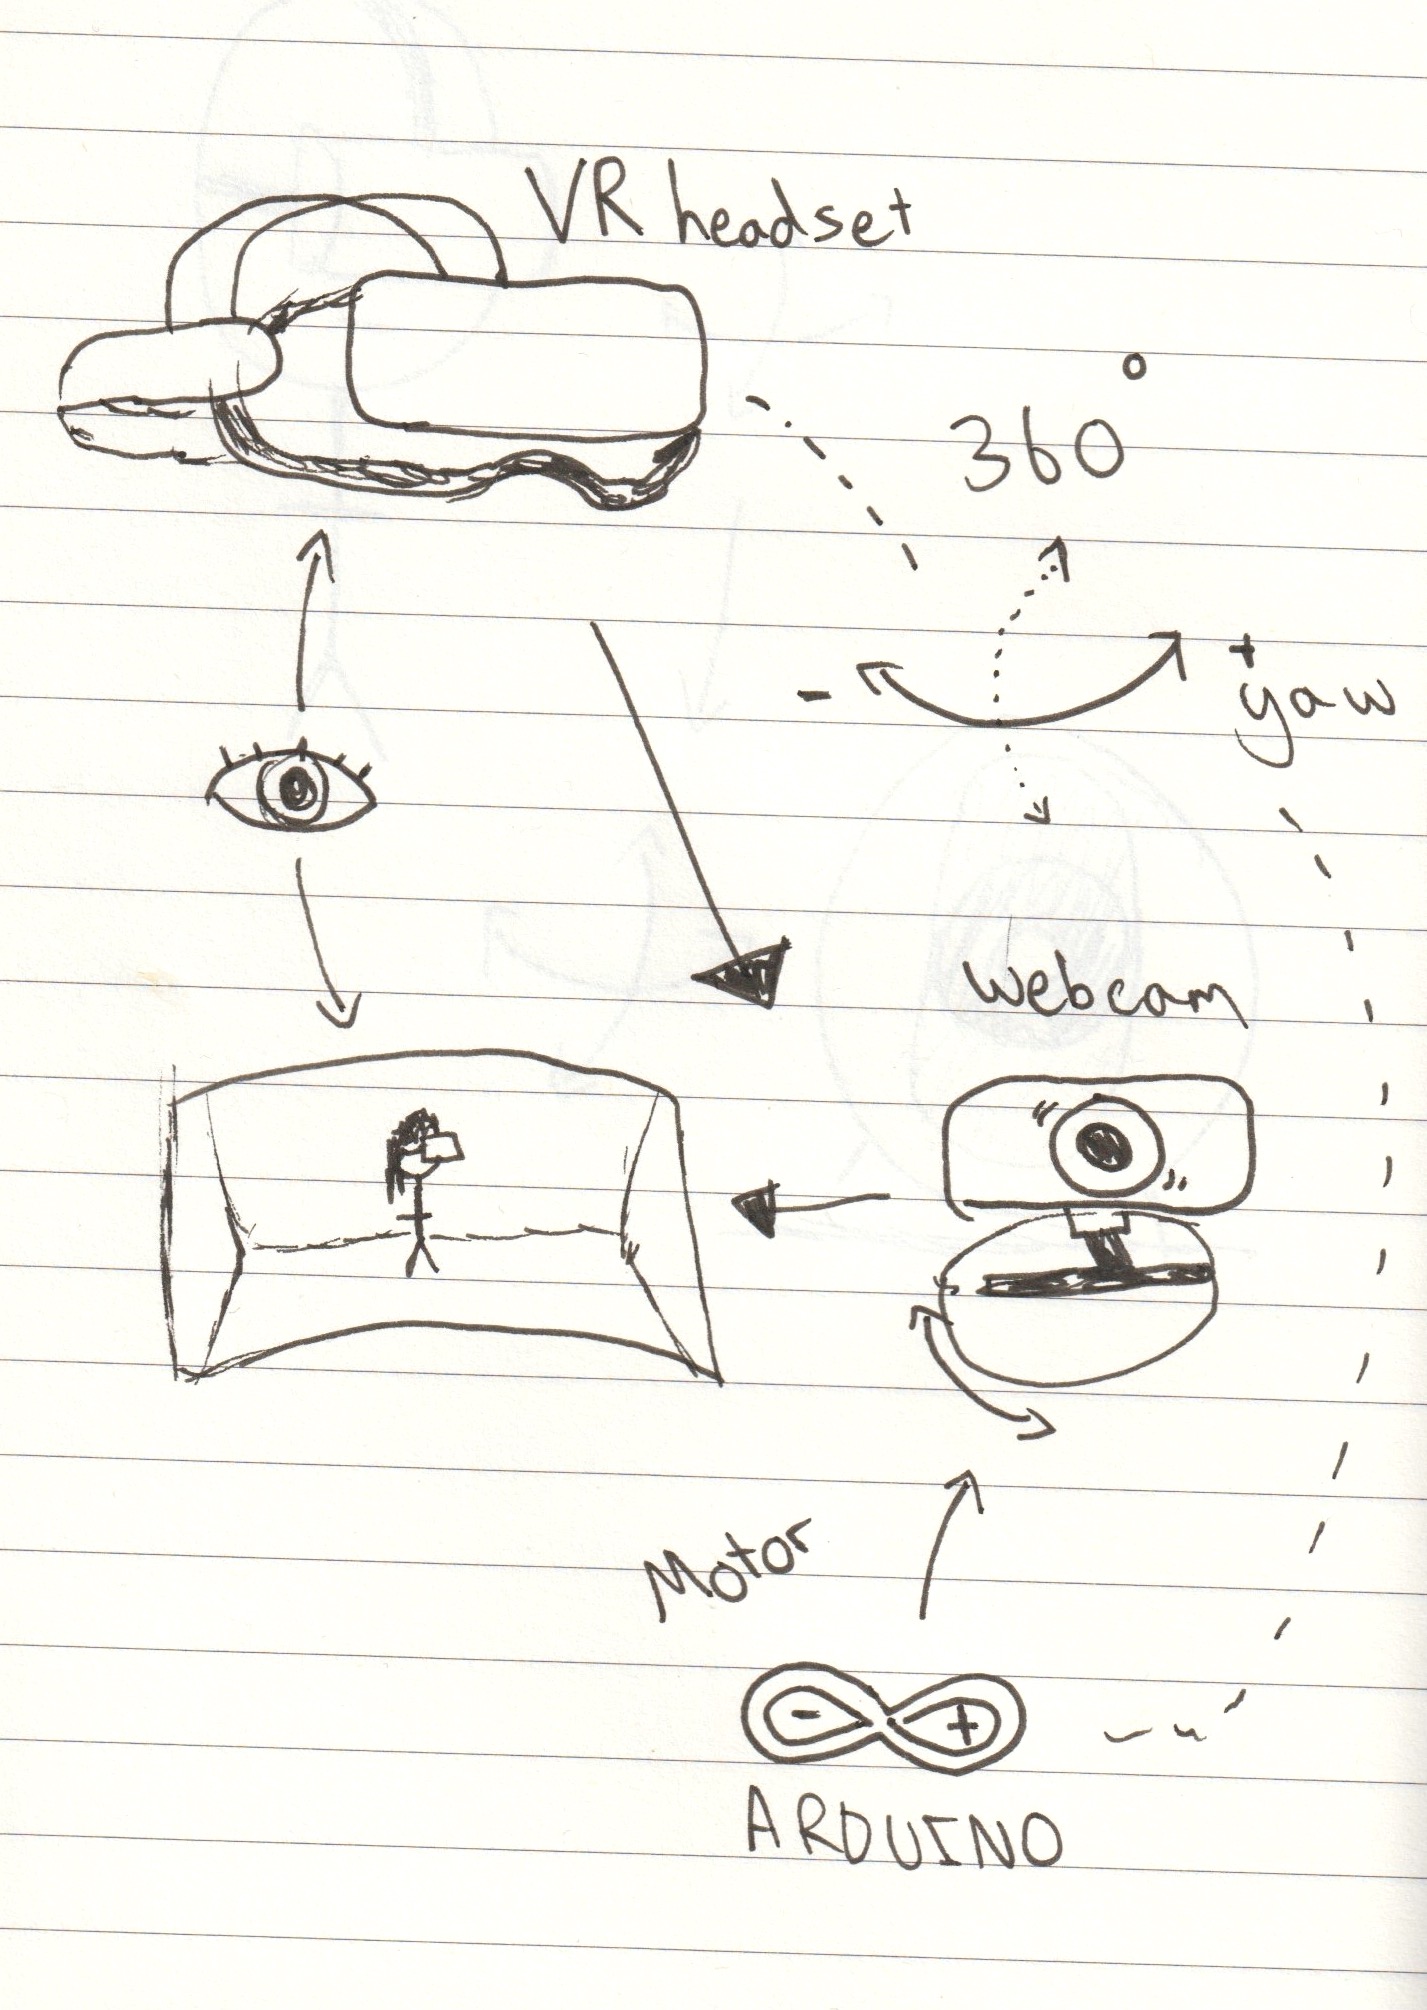 VR headset
360°
- + yaw
webcam
Motor
- +
ARDUINO